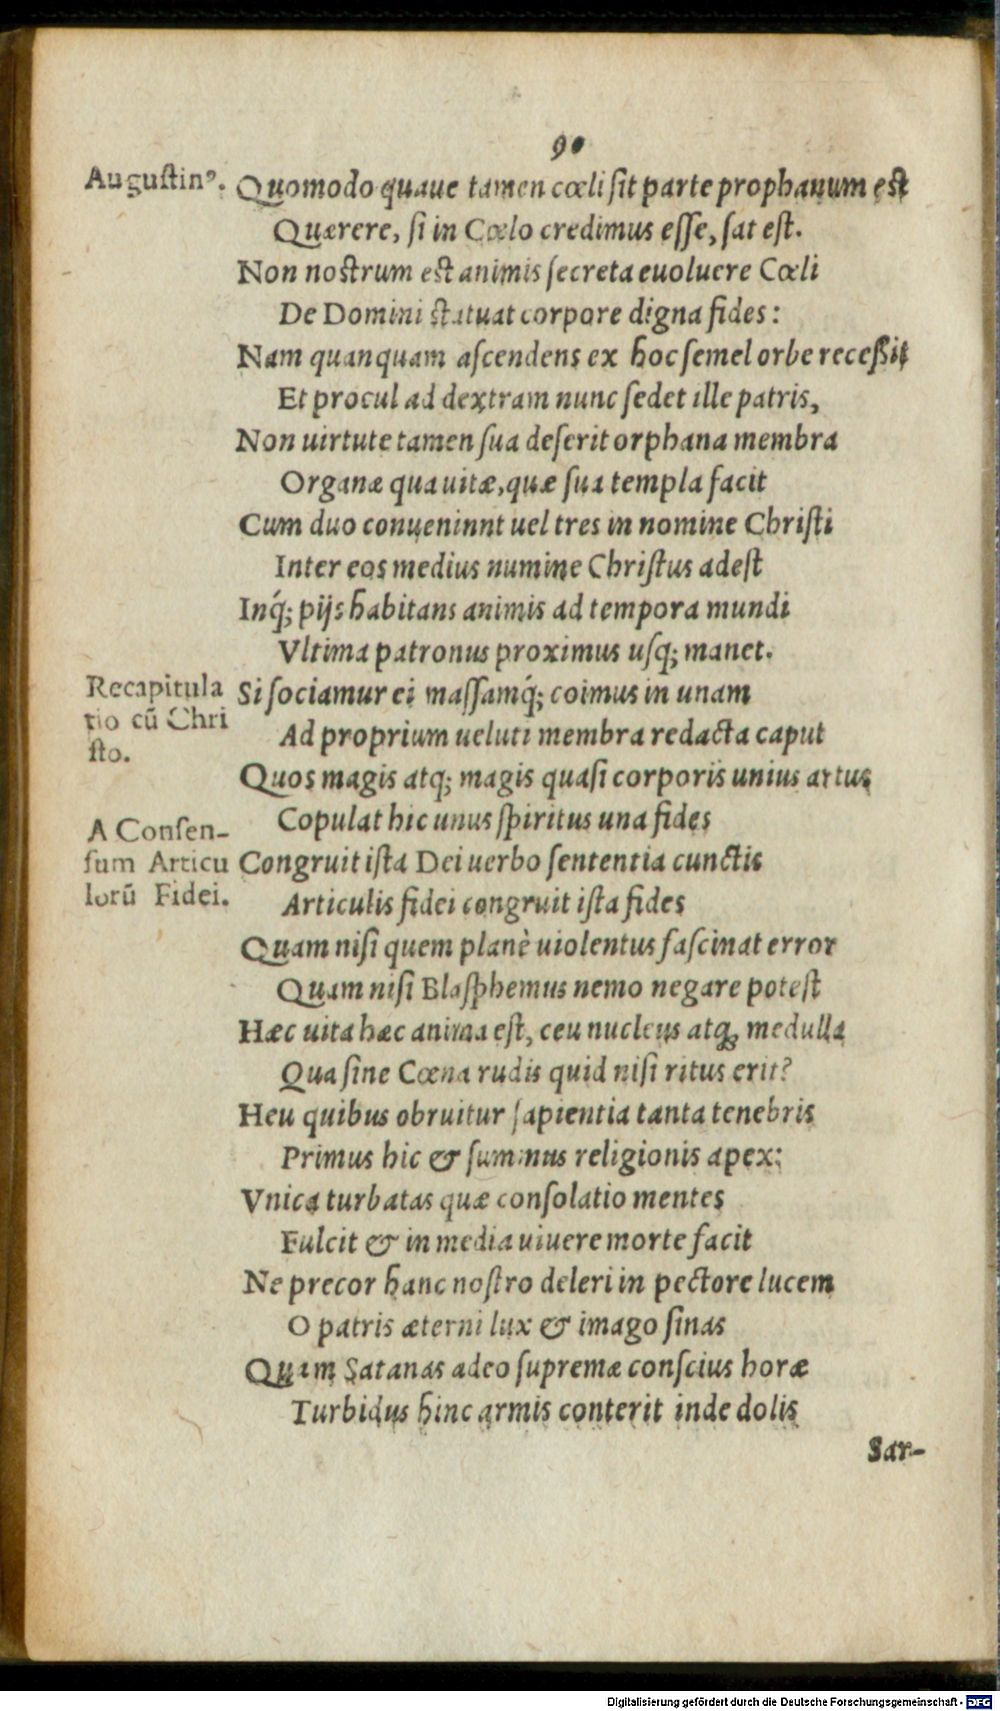 90
Augustinꝰ. Quomodo quaue tamen cœli sit parte prophanum est
Quærere, si in Cœlo credimus esse, sat est.
Non nostrum est animis secreta euoluere Cœli
De Domini statuat corpore digna fides:
Nam quanquam ascendens ex hoc semel orbe recessit
Et procul ad dextram nunc sedet ille patris,
Non uirtute tamen sua deserit orphana membra
Organæ qua uitæ, quæ sua templa facit
Cum duo conueninnt uel tres in nomine Christi
Inter eos medius numine Christus adest
Inq́; pijs habitans animis ad tempora mundi
Vltima patronus proximus usq; manet.
Recapitula
tio cū Chri
sto.
Si sociamur ei massamq́; coimus in unam
Ad proprium ueluti membra redacta caput
Quos magis atq; magis quasi corporis unius artus
Copulat hic unus spiritus una fides
A Consen-
sum Articu
lorū Fidei.
Congruit ista Dei uerbo sententia cunctis
Articulis fidei congruit ista fides
Quam nisi quem planè uiolentus fascinat error
Quam nisi Blasphemus nemo negare potest
Hæc uita hæc anima est, ceu nucleus atq; medulla
Qua sine Cœna rudis quid nisi ritus erit?
Heu quibus obruitur sapientia tanta tenebris
Primus hic & summus religionis apex:
Vnica turbatas quæ consolatio mentes
Fulcit & in media uiuere morte facit
Ne precor hanc nostro deleri in pectore lucem
O patris æterni lux & imago sinas
Quam Satanas adeo supremæ conscius horæ
Turbidus hinc armis conterit inde dolis
Sar-
Digitalisierung gefördert durch die Deutsche Forschungsgemeinschaft - DFG